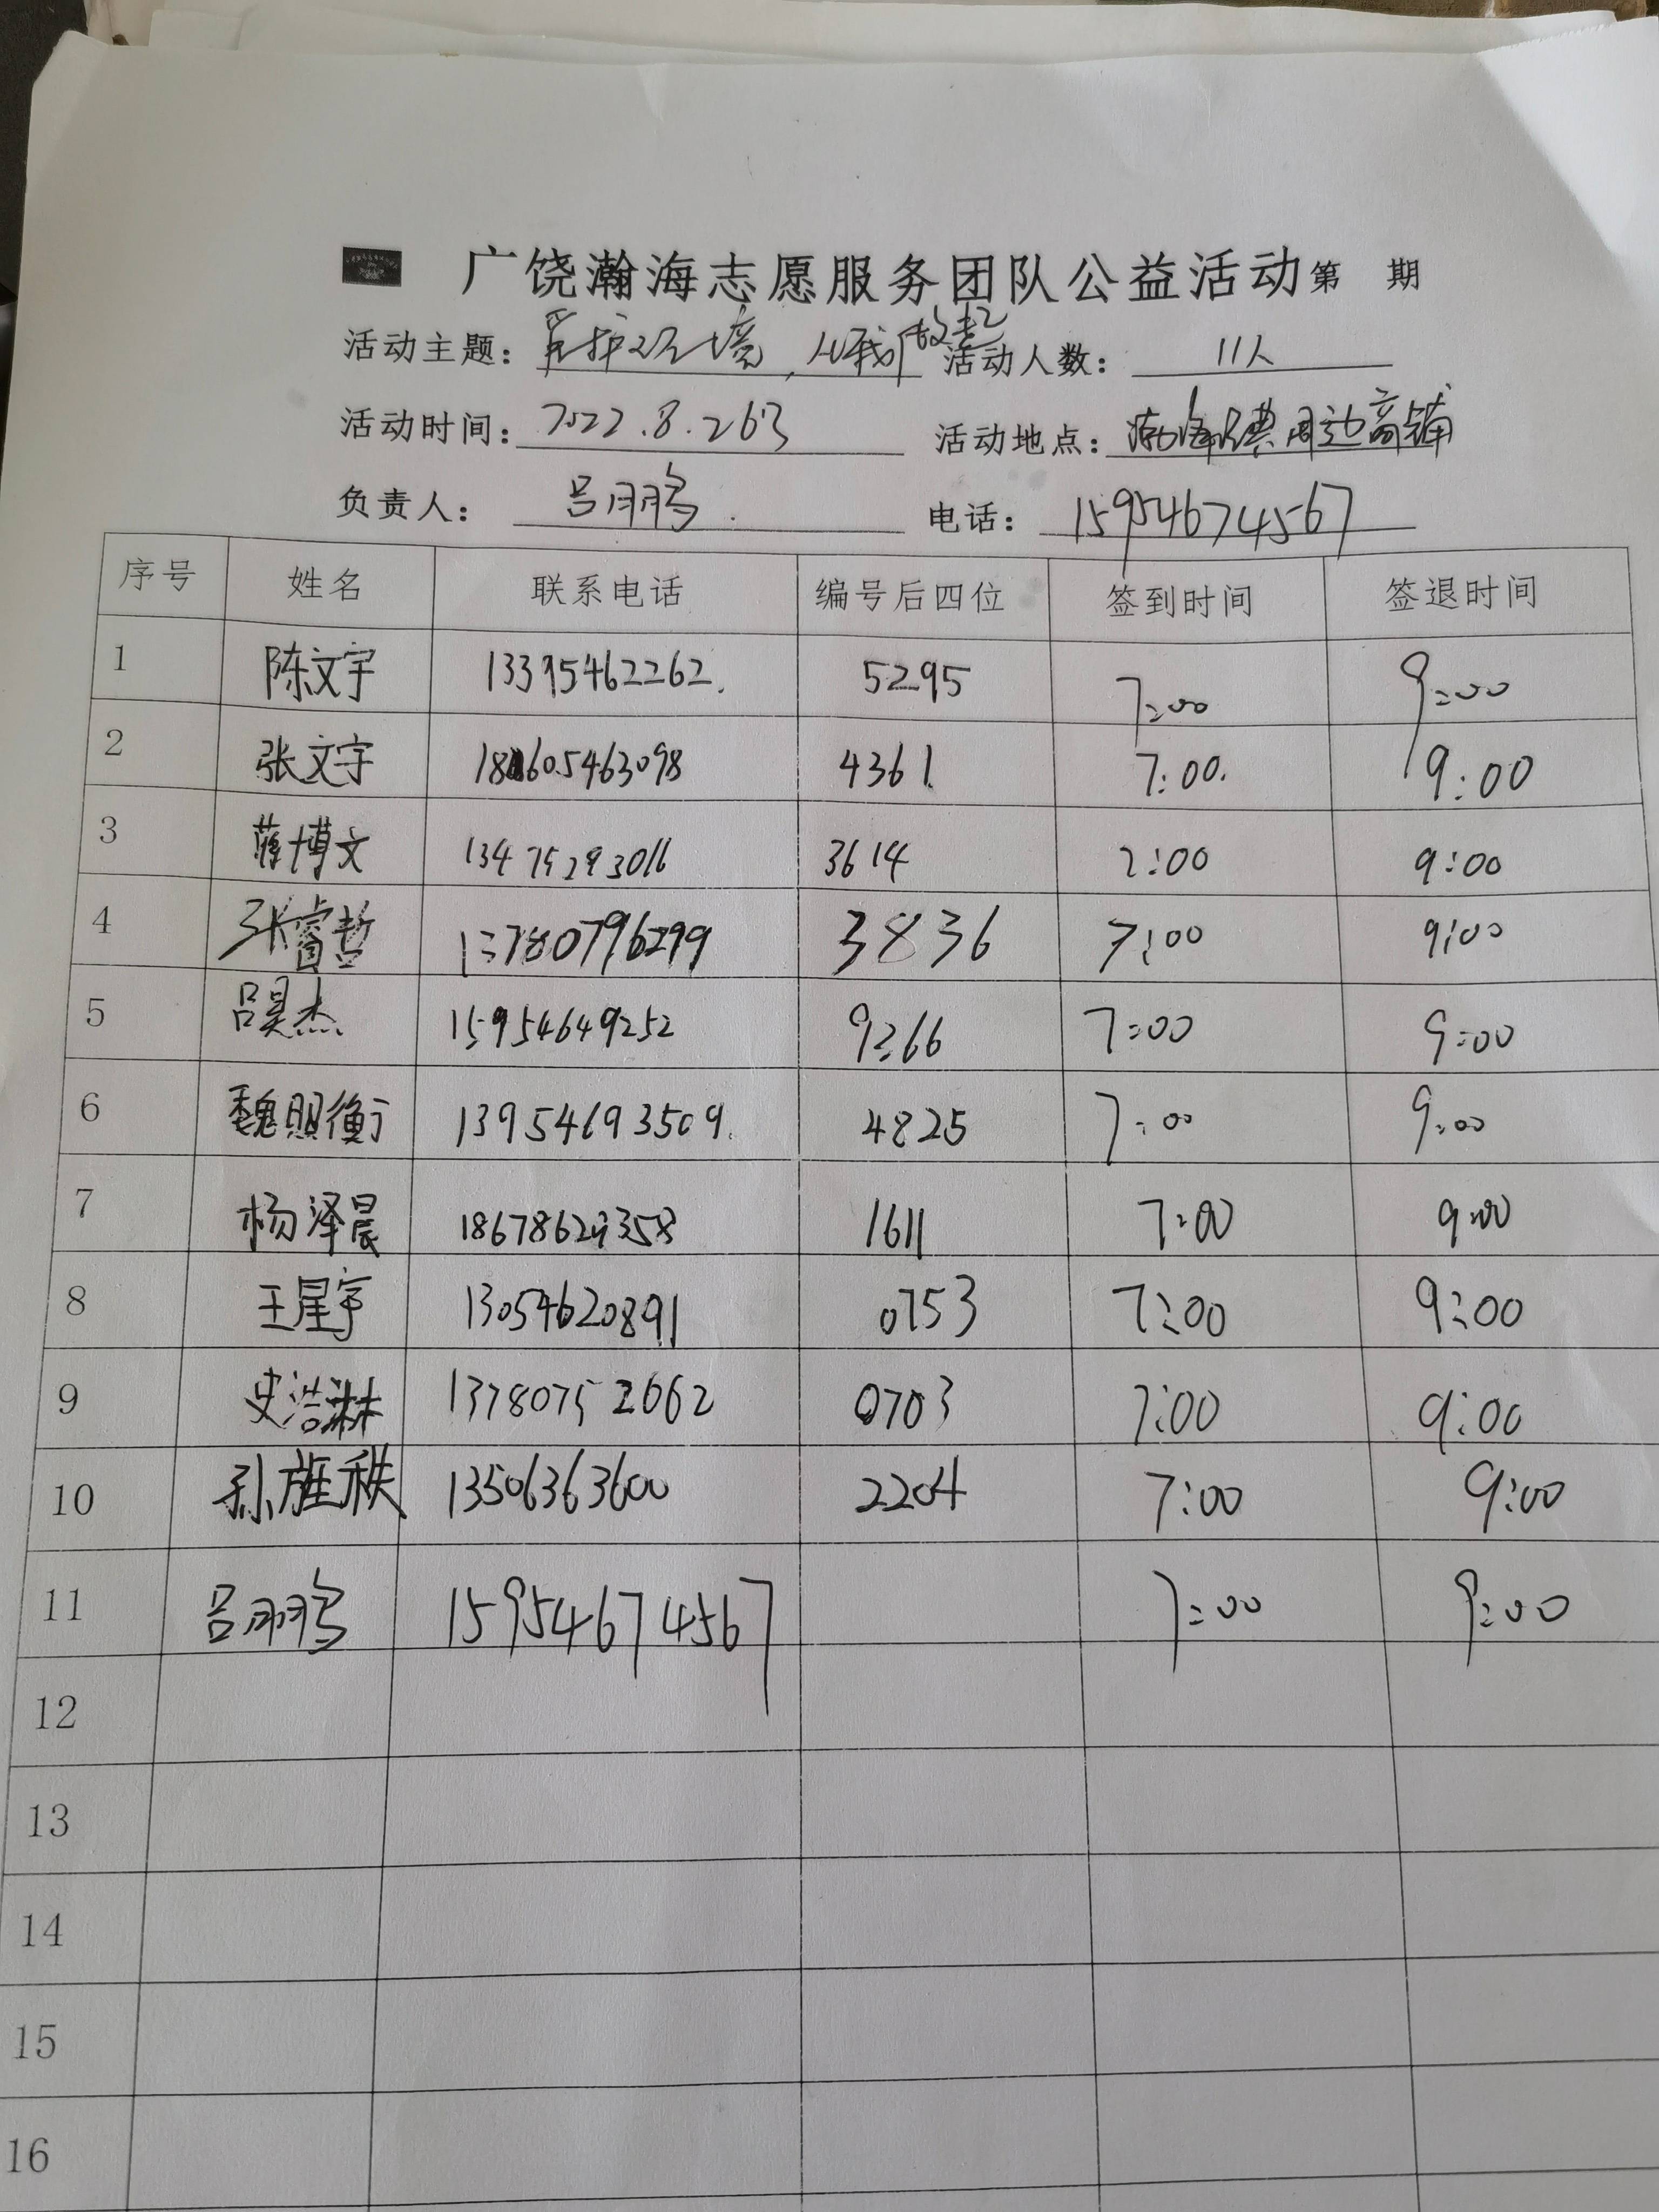 广饶瀚海志愿服务团队公益活动第 期
活动主题：爱护环境，从我做起 活动人数： 11人
活动时间：2022.8.26日 活动地点： 周边商铺
负责人： 吕鹏 电话：15954674567
序号 姓名 联系电话 编号后四位 签到时间 签退时间
1 陈文宇 13395462262. 5295 7:00 9:00
2 张文宇 18605463098 4361. 7:00. 9:00
3 蒋博文 13475293016 3614 7:00 9:00
4 张睿哲 13780796299 3836 7:00 9:00
5 吕昊杰 15954649252 9266 7:00 9:00
6 魏照衡 13954693509. 4825 7:00 9:00
7 杨泽晨 1611 7:00 9:00
8 王星宇 13054620891 0753 7:00 9:00
9 史浩淋 13780752662 0703 7:00 9:00
10 孙旌秩 13506363600 2204 7:00 9:00
11 吕鹏 15954674567 7:00 9:00
12
13
14
15
16